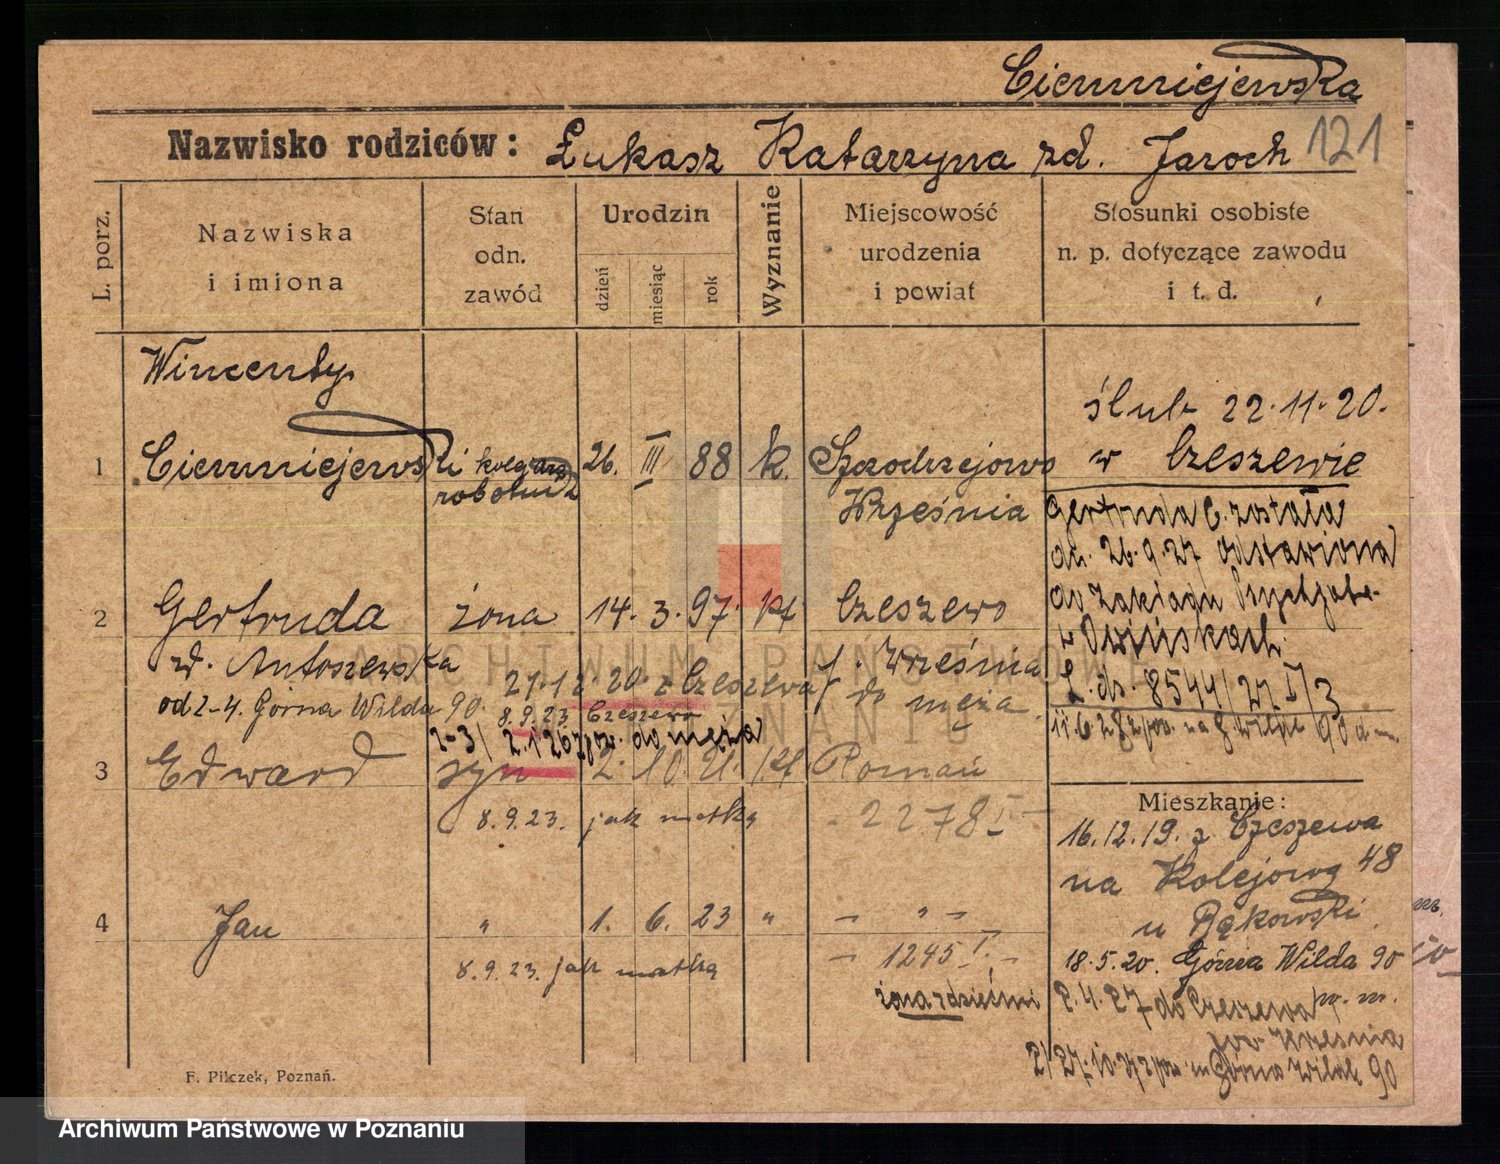 Ciemniejewska
Nazwisko rodziców: Łukasz Katarzyna zd. Jaroch 121
L. porz.
Nazwiska
i imiona
Stan
odn.
zawód
Urodzin
dzień
miesiąc
rok
Wyznanie
Miejscowość
urodzenia
i powiat
Stosunki osobiste
n. p. dotyczące zawodu
i t. d.
Wincenty
ślub 22.11.20.
1 Ciemniejewski robotnik 26. III 88 k. Szczodrzejewo w Czeszewie
Września
Gertruda C. została
dn. 26.9.27 odstawiona
do zakładu
w Owińskach
L. dz. 8544/27 I/3
2 Gertruda żona 14. 3. 97. kt Czeszewo
zd. Antoszewska p. Września
27.12.20 z Czeszewa do męża
od 2-4. Górna Wilda 90. 8.9.23 Czeszewo
do męża
90 d. m.
3 Edward syn 2. 10. 21. kt Poznań
8.9.23. jak matka - 2278 I -
Mieszkanie:
16.12.19. z Czeszewa
na Kolejową 48
u Bąkowski.
4 Jan " 1. 6. 23 " - " -
8.9.23. jak matka - 1245 I. -
18.5.20. Górna Wilda 90
żona z dziećmi 2.4.27 do Czeszewa
pow. Września
Górna Wilda 90
F. Pilczek, Poznań.
ARCHIWUM PAŃSTWOWE
W POZNANIU
Archiwum Państwowe w Poznaniu